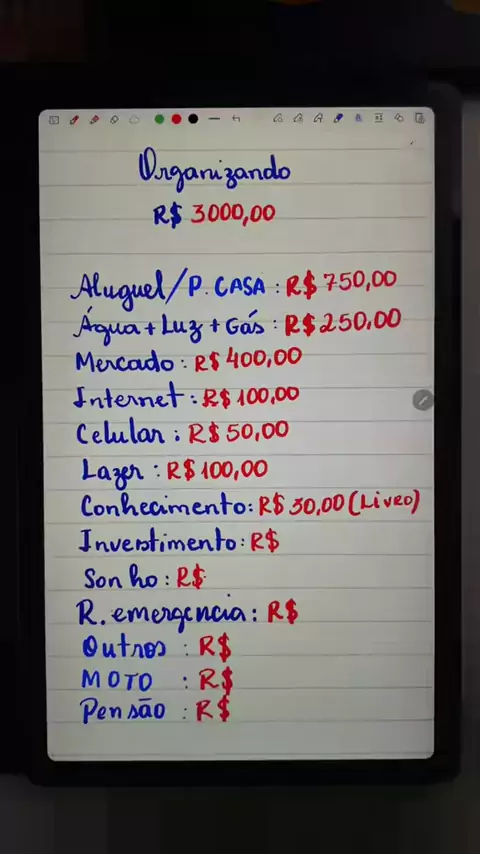 Organizando
R$ 3000,00
Aluguel/P. CASA : R$ 750,00
Água + Luz + Gás : R$ 250,00
Mercado : R$ 400,00
Internet : R$ 100,00
Celular : R$ 50,00
Lazer : R$ 100,00
Conhecimento: R$ 30,00 (Livro)
Investimento: R$
Sonho : R$
R. emergencia : R$
Outros : R$
MOTO : R$
Pensão : R$